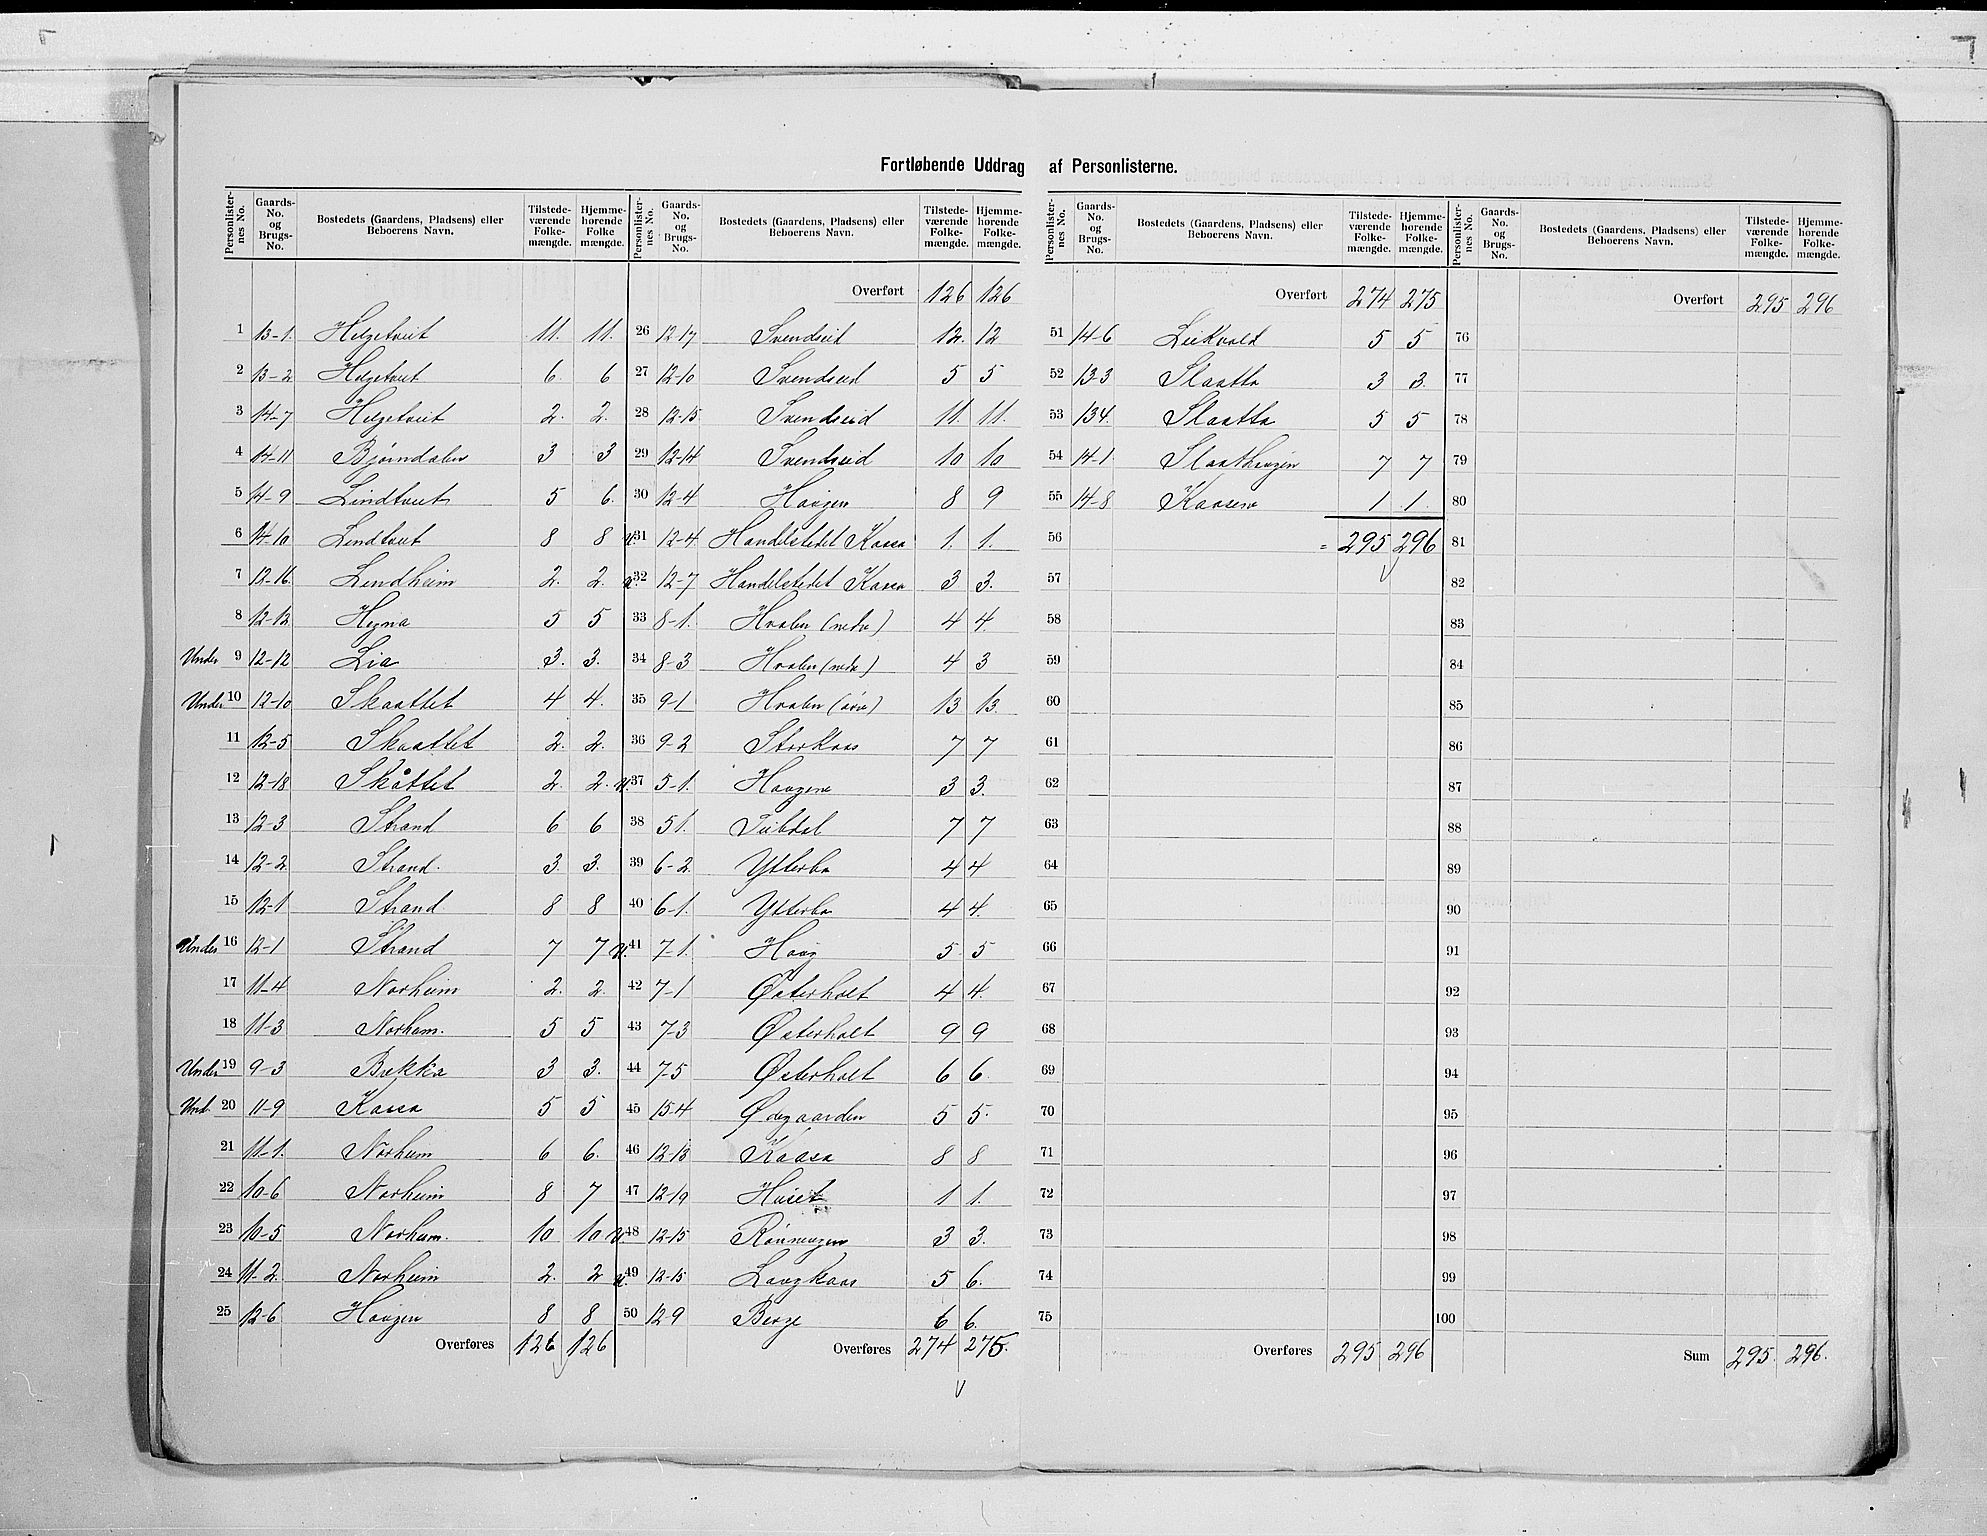 Fortløbende Uddrag af Personlisterne.
Personlister-nes No. Gaards-No. og Brugs-No. Bostedets (Gaardens, Pladsens) eller Beboerens Navn. Tilstede-værende Folke-mængde. Hjemme-hørende Folke mængde.
1 13-1. Helgetveit 11. 11.
2 13-2 Helgetveit 6. 6
3 14-7 Helgetveit 2. 2.
4 14-11 Bjørndalen 3 3
5 14-9 Lindtveit 5 6.
6 14-10 Lindtveit 8 8
7 12-16. Lindheim 2. 2.
8 12-12 Hegna 5 5
Under 9 12-12 Lia 3. 3.
Under 10 12-10 Skaattet 4 4.
11 12-5 Skaattet 2. 2.
12 12-18 Skåttet 2. 2.
13 12-3 Strand 6 6
14 12-2 Strand. 3. 3.
15 12-1 Strand 8 8
Under 16 12-1 Strand 7 7
17 11-4 Norheim 2. 2.
18 11-3 Norheim. 5 5
Under 19 9-3 Bekka 3 3.
Und. 20 11-9 Kaasa 5 5
21 11-1. Norheim 6 6.
22 10-6 Norheim 8 7
23 10-5 Norheim. 10 10
24 11-2. Norheim 2. 2
25 12-6 Haugen 8 8
Overføres 126 126
Personlister-nes No. Gaards-No. og Brugs-No. Bostedets (Gaardens, Pladsens) eller Beboerens Navn. Tilstede-værende Folke-mængde. Hjemme-hørende Folke-mængde.
Overført 126 126
26 12-17 Svendseid 12. 12
27 12-10 Svendseid 5 5
28 12-15 Svendseid 11. 11.
29 12-14 Svendseid 10 10
30 12-4 Haugen 8 9
U. 31 12-4 Handelstedet Kaasa 1. 1.
U. 32 12-7 Handelstedet Kaasa 3 3.
33 8-1. Hvalen (nedre) 4 4.
34 8-3 Hvalen (nedre) 4 3
35 9-1 Hvalen (øvre) 13 13.
36 9-2 Storkaas 7 7
U. 37 5-1. Haugene 3 3.
38 51. Tveitdal 7 7
39 6-2. Ytterbø 4 4
40 6-1. Ytterbø 4 4.
U. 41 7-1. Haug 5 5
42 7-1 Østerholt 4 4.
43 7-3 Østerholt 9 9
44 7-5 Østerholt 6 6.
45 15-4 Ødegaarden 5 5.
46 12-13 Kaasa 8 8
47 12-19 Huset 1 1.
U. 48 12-15 Rønningen 3 3.
U. 49 12-15 Langkaas 5 6.
50 12-9 Berge 6 6.
Overføres 274 275.
Personlister-nes No. Gaards-No. og Brugs-No. Bostedets (Gaardens, Pladsens) eller Beboerens Navn. Tilstede-værende Folke-mængde. Hjemme-hørende Folke-mængde.
Overført 274 275
51 14-6 Leikvold 5 5
52 13-3 Slaatta 3 3.
53 134. Slaatta 5 5
54 14-1 Slaathaugen 7 7
55 14-8 Kaasene 1 1.
56 = 295 296
57
58
59
60
61
62
63
64
65
66
67
68
69
70
71
72
73
74
75
Overføres 295 296
Personlister-nes No. Gaards-No. og Brugs-No. Bostedets (Gaardens, Pladsens) eller Beboerens Navn. Tilstede-værende Folke-mængde. Hjemme-hørende Folke-mængde.
Overført 295 296
76
77
78
79
80
81
82
83
84
85
86
87
88
89
90
91
92
93
94
95
96
97
98
99
100
Sum 295. 296.